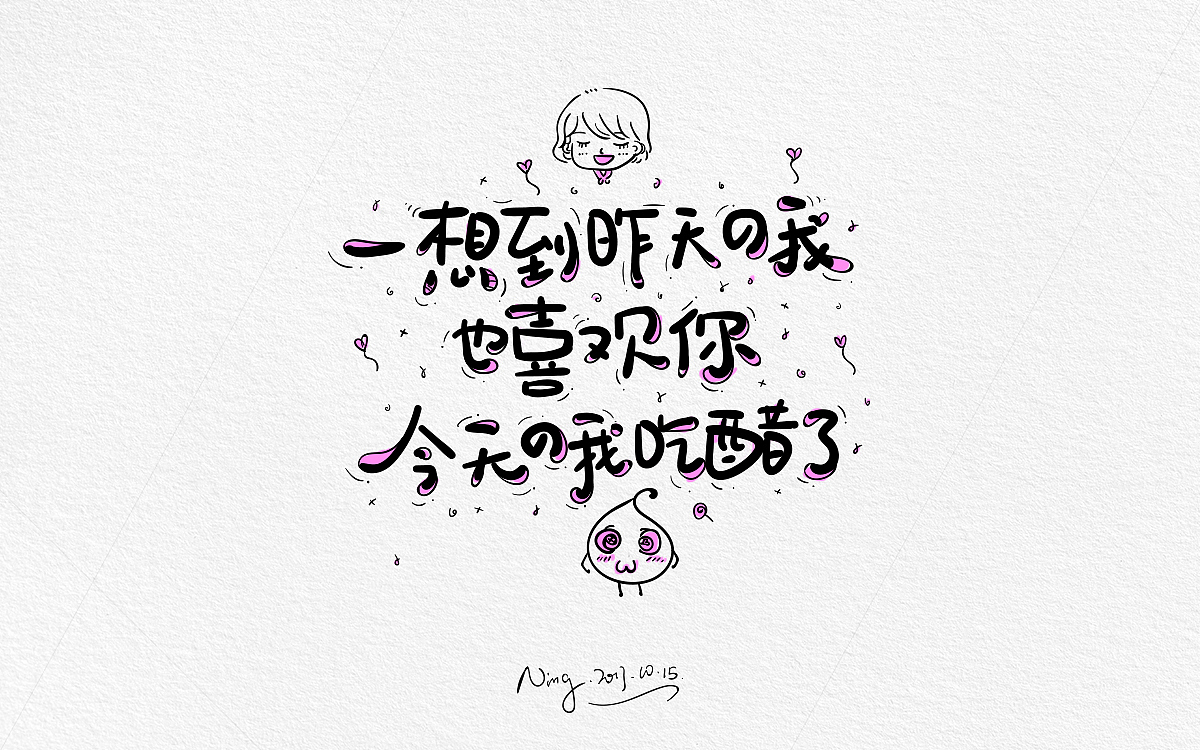 一想到昨天の我
也喜欢你
今天の我吃醋了
Ning.2017.10.15.